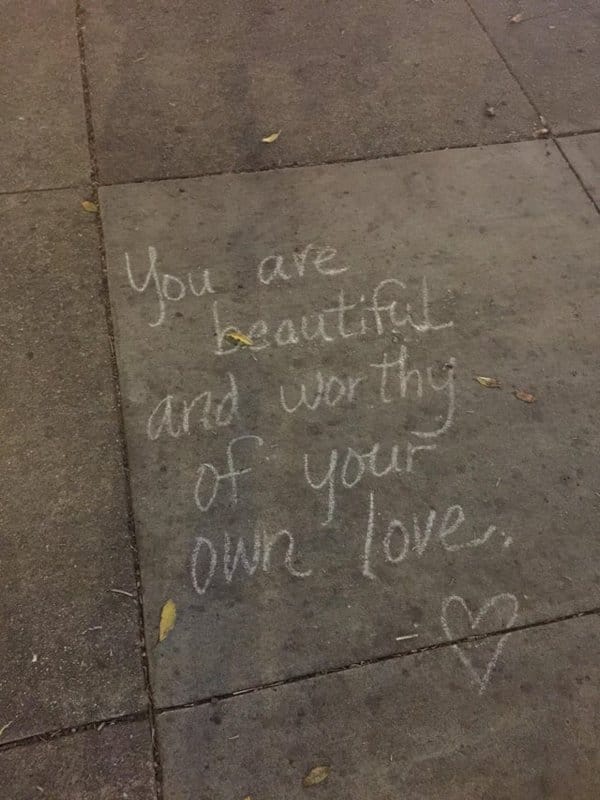 You are
beautiful
and worthy
of your
own love.